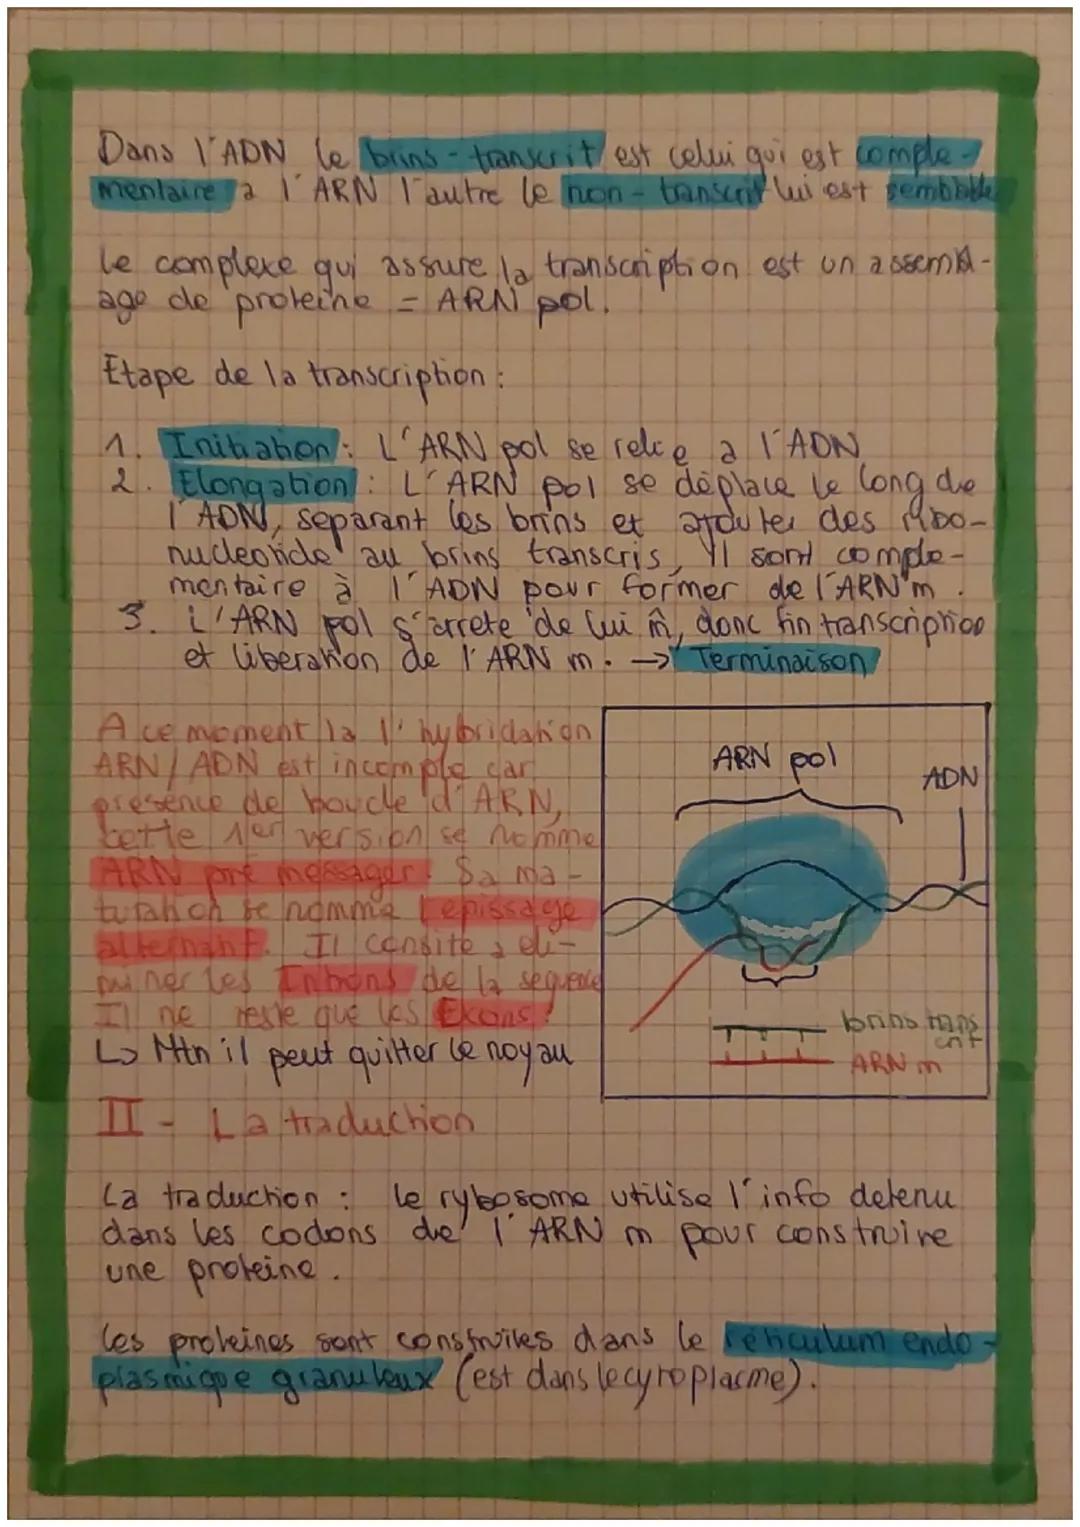 Dans l'ADN le brins-transcrit est celui qui est comple-
mentaire a l'ARN l'autre le non-transcrit lui est semblable
Le complexe qui assure la transcription est un assembl-
age de proteine = ARN pol.
Etape de la transcription :
1. Initiation : L'ARN pol se relie a l'ADN
2. Elongation : L'ARN pol se déplace le long de
l'ADN, séparant les brins et ajouter des ribo-
nucleotide au brins transcris, Il sont comple-
mentaire à l'ADN pour former de l'ARN m.
3. L'ARN pol s'arrete de lui m̂, donc fin transcription
et liberation de l'ARN m. → Terminaison
A ce moment la l'hybridation
ARN / ADN est incomple car
presence de boucle d'ARN,
cette 1er version se nomme
ARN pré messager. Sa ma-
turation se nomme l'epissage
alternant. Il consite a eli-
miner les Introns de la sequence
Il ne reste que les Exons.
↳ Mtn il peut quitter le noyau
ARN pol
ADN
brins trans
crit
ARN m
II - La traduction
La traduction : le rybosome utilise l'info detenu
dans les codons de l'ARN m pour construire
une proteine.
Les proteines sont construites dans le réticulum endo-
plasmique granuleux (est dans le cytoplasme).